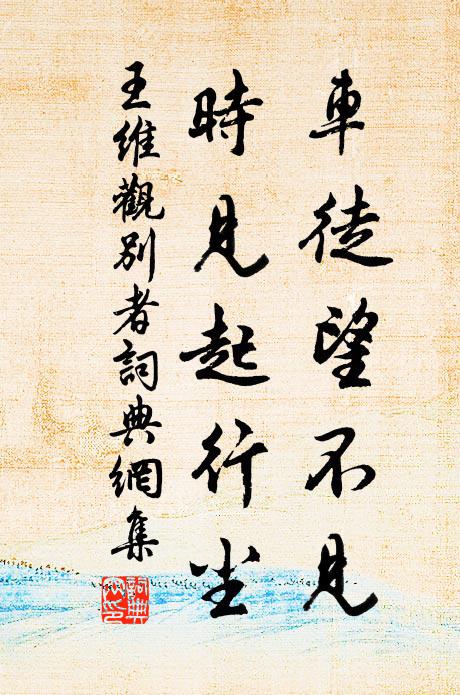 車徒望不見
時見起行尘
王維觀別者詞典網集